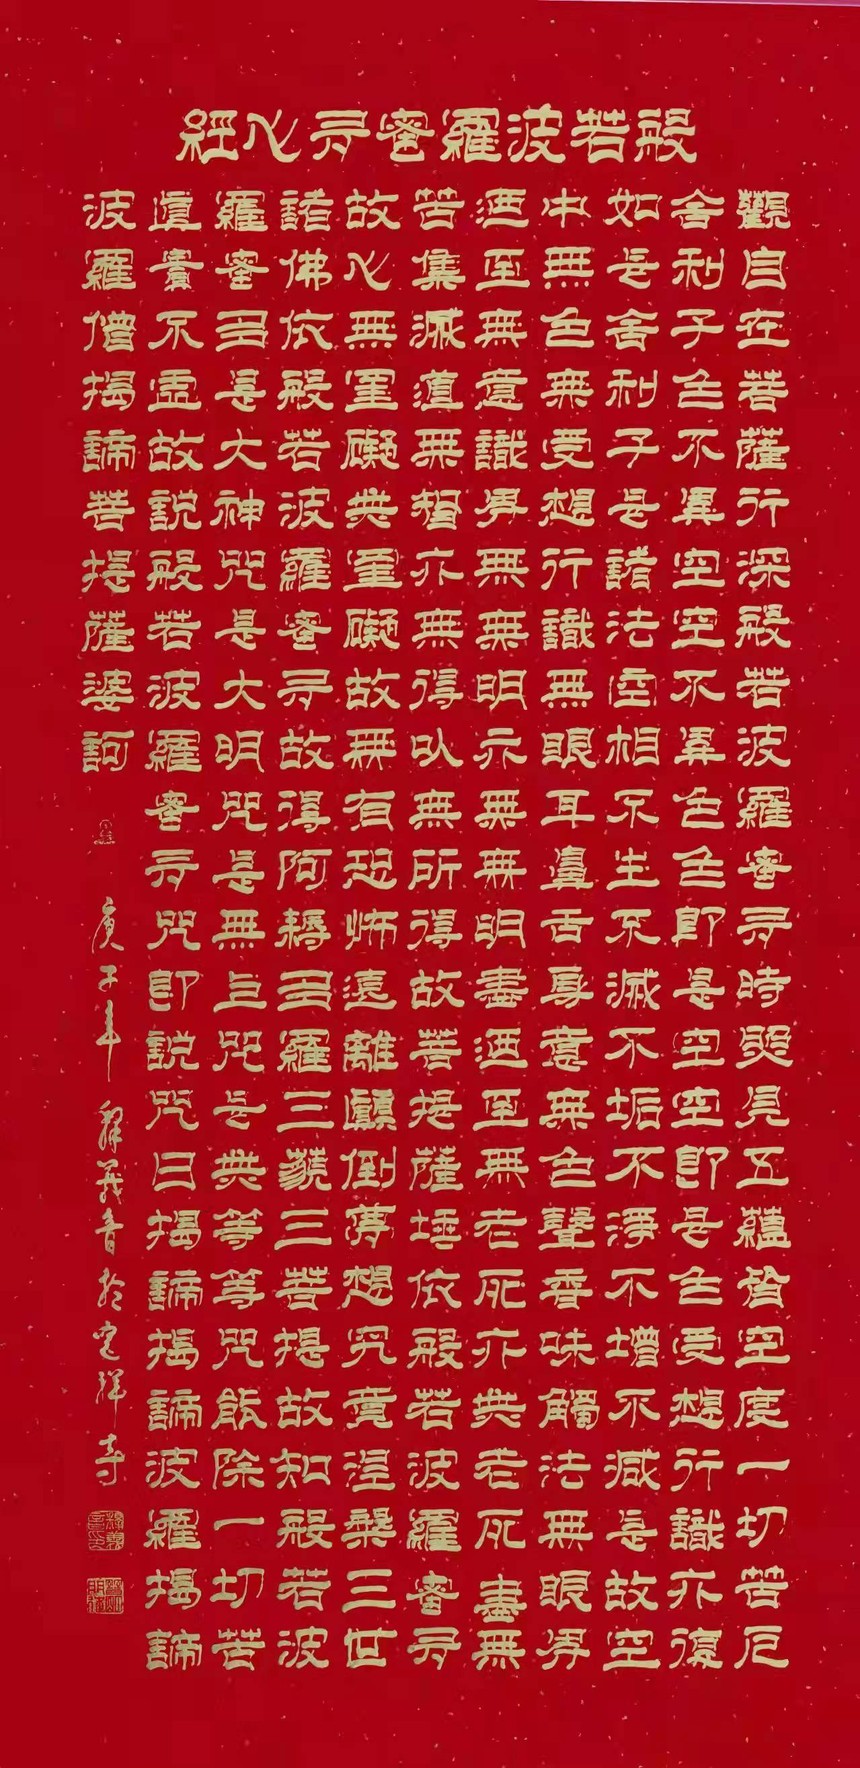 般若波羅蜜多心經
觀自在菩薩行深般若波羅蜜多時照見五蘊皆空度一切苦厄
舍利子色不異空空不異色色即是空空即是色受想行識亦復
如是舍利子是諸法空相不生不滅不垢不淨不增不減是故空
中無色無受想行識無眼耳鼻舌身意無色聲香味觸法無眼界
迺至無意識界無無明亦無無明盡迺至無老死亦無老死盡無
苦集滅道無智亦無得以無所得故菩提薩埵依般若波羅蜜多
故心無罣礙無罣礙故無有恐怖遠離顛倒夢想究竟涅槃三世
諸佛依般若波羅蜜多故得阿耨多羅三藐三菩提故知般若波
羅蜜多是大神咒是大明咒是無上咒是無等等咒能除一切苦
真實不虛故說般若波羅蜜多咒即說咒曰揭諦揭諦波羅揭諦
波羅僧揭諦菩提薩婆訶
庚子年釋義音於寺